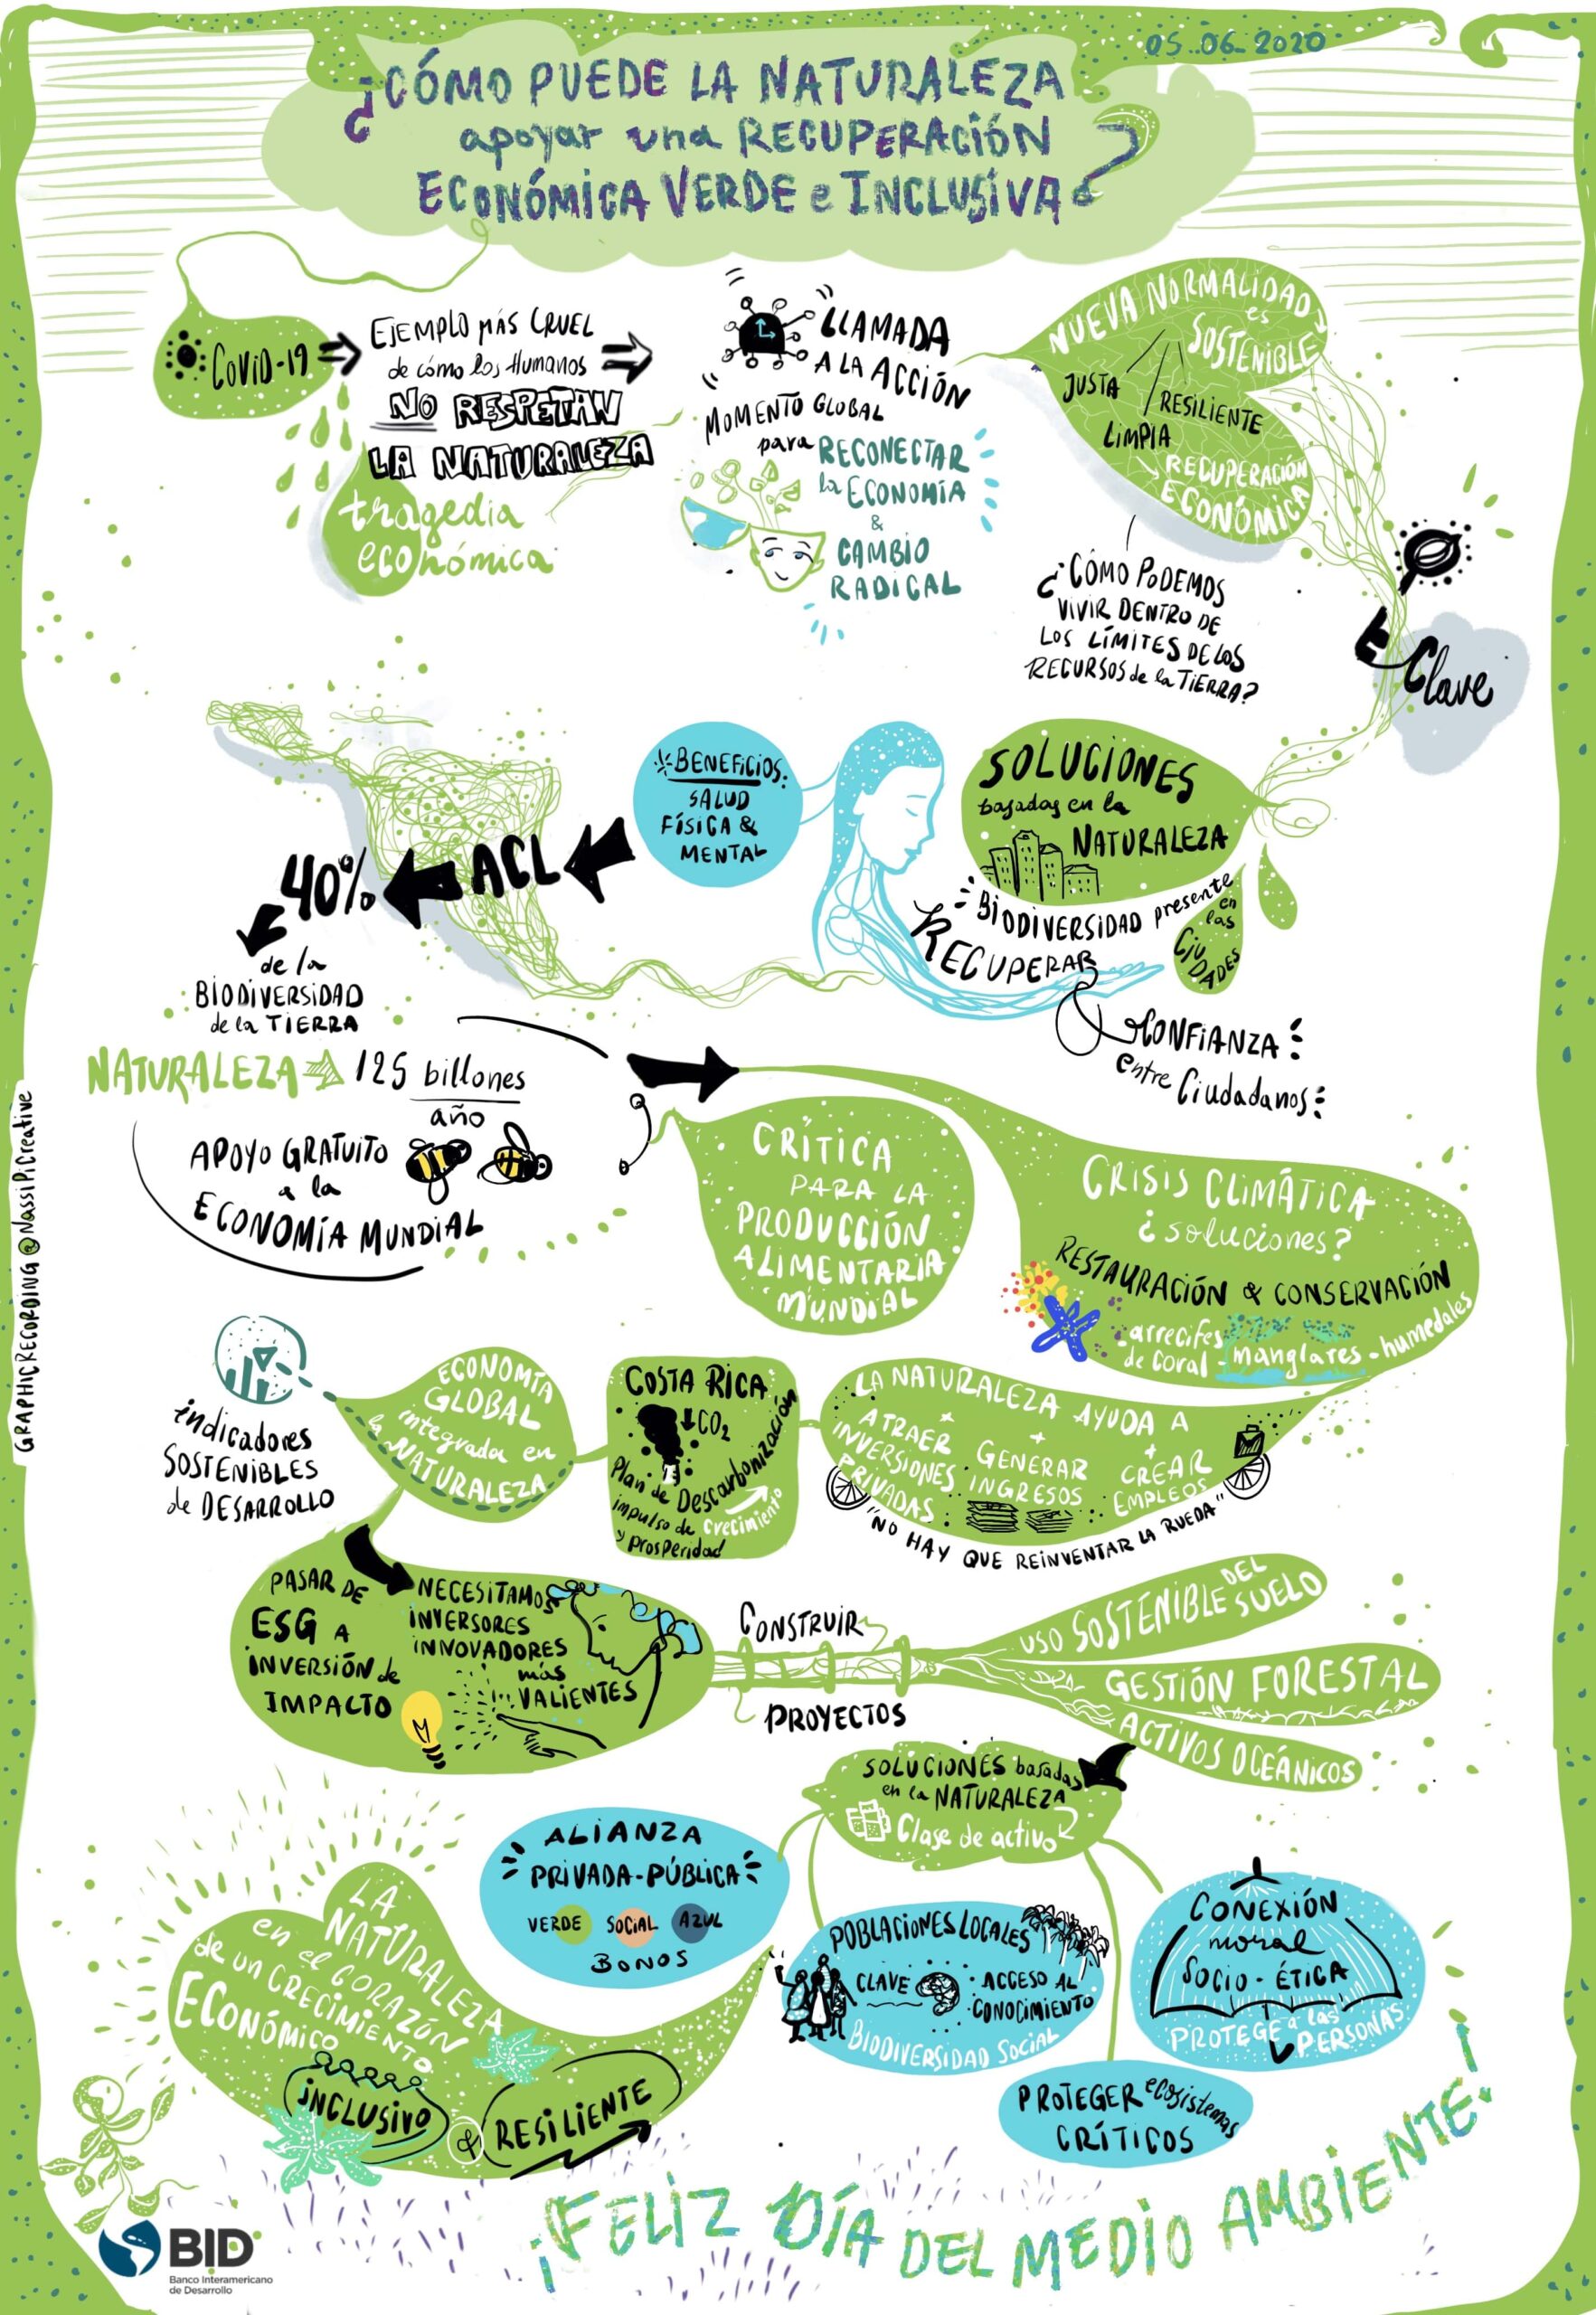 05.06.2020
¿CÓMO PUEDE LA NATURALEZA
apoyar una RECUPERACIÓN
ECONÓMICA VERDE e INCLUSIVA?
COVID-19
EJEMPLO MÁS CRUEL
de cómo los Humanos
NO RESPETAN
LA NATURALEZA
tragedia
económica
LLAMADA
A LA ACCIÓN
MOMENTO GLOBAL
para RECONECTAR
la ECONOMÍA
&
CAMBIO
RADICAL
NUEVA NORMALIDAD
es
SOSTENIBLE
JUSTA
LIMPIA
RESILIENTE
RECUPERACIÓN
ECONÓMICA
¿CÓMO PODEMOS
VIVIR DENTRO DE
LOS LÍMITES DE LOS
RECURSOS de la TIERRA?
Clave
SOLUCIONES
basadas en la
NATURALEZA
BIODIVERSIDAD presente
en
las
CIUDADES
RECUPERAR
CONFIANZA
entre Ciudadanos
BENEFICIOS:
SALUD
FÍSICA &
MENTAL
ACL
40%
de la
BIODIVERSIDAD
de la TIERRA
NATURALEZA 125 billones
año
APOYO GRATUITO
a la
ECONOMÍA MUNDIAL
CRÍTICA
PARA LA
PRODUCCIÓN
ALIMENTARIA
MUNDIAL
CRISIS CLIMÁTICA
¿soluciones?
RESTAURACIÓN & CONSERVACIÓN
-arrecifes
de coral -manglares -humedales
LA NATURALEZA AYUDA A
+ ATRAER
INVERSIONES
PRIVADAS
+ GENERAR
INGRESOS
+ CREAR
EMPLEOS
"NO HAY QUE REINVENTAR LA RUEDA"
COSTA RICA
CO2
Plan de Descarbonización
impulso de crecimiento
y prosperidad
ECONOMÍA
GLOBAL
integrada en
la NATURALEZA
indicadores
SOSTENIBLES
de DESARROLLO
PASAR DE
ESG A
INVERSIÓN de
IMPACTO
NECESITAMOS
INVERSORES
INNOVADORES
más
VALIENTES
CONSTRUIR
PROYECTOS
USO SOSTENIBLE DEL SUELO
GESTIÓN FORESTAL
ACTIVOS OCEÁNICOS
SOLUCIONES basadas
en la NATURALEZA
Clase de activo
ALIANZA
PRIVADA-PÚBLICA
VERDE SOCIAL AZUL
BONOS
POBLACIONES LOCALES
CLAVE
ACCESO AL
CONOCIMIENTO
BIODIVERSIDAD SOCIAL
CONEXIÓN
moral
SOCIO-ÉTICA
PROTEGE a las
PERSONAS
PROTEGER ecosistemas
CRÍTICOS
LA
NATURALEZA
en el CORAZÓN
de un CRECIMIENTO
ECONÓMICO
INCLUSIVO
&
RESILIENTE
¡FELIZ DÍA DEL MEDIO AMBIENTE!
BID
Banco Interamericano
de Desarrollo
GRAPHIC RECORDING @NassiPiCreative